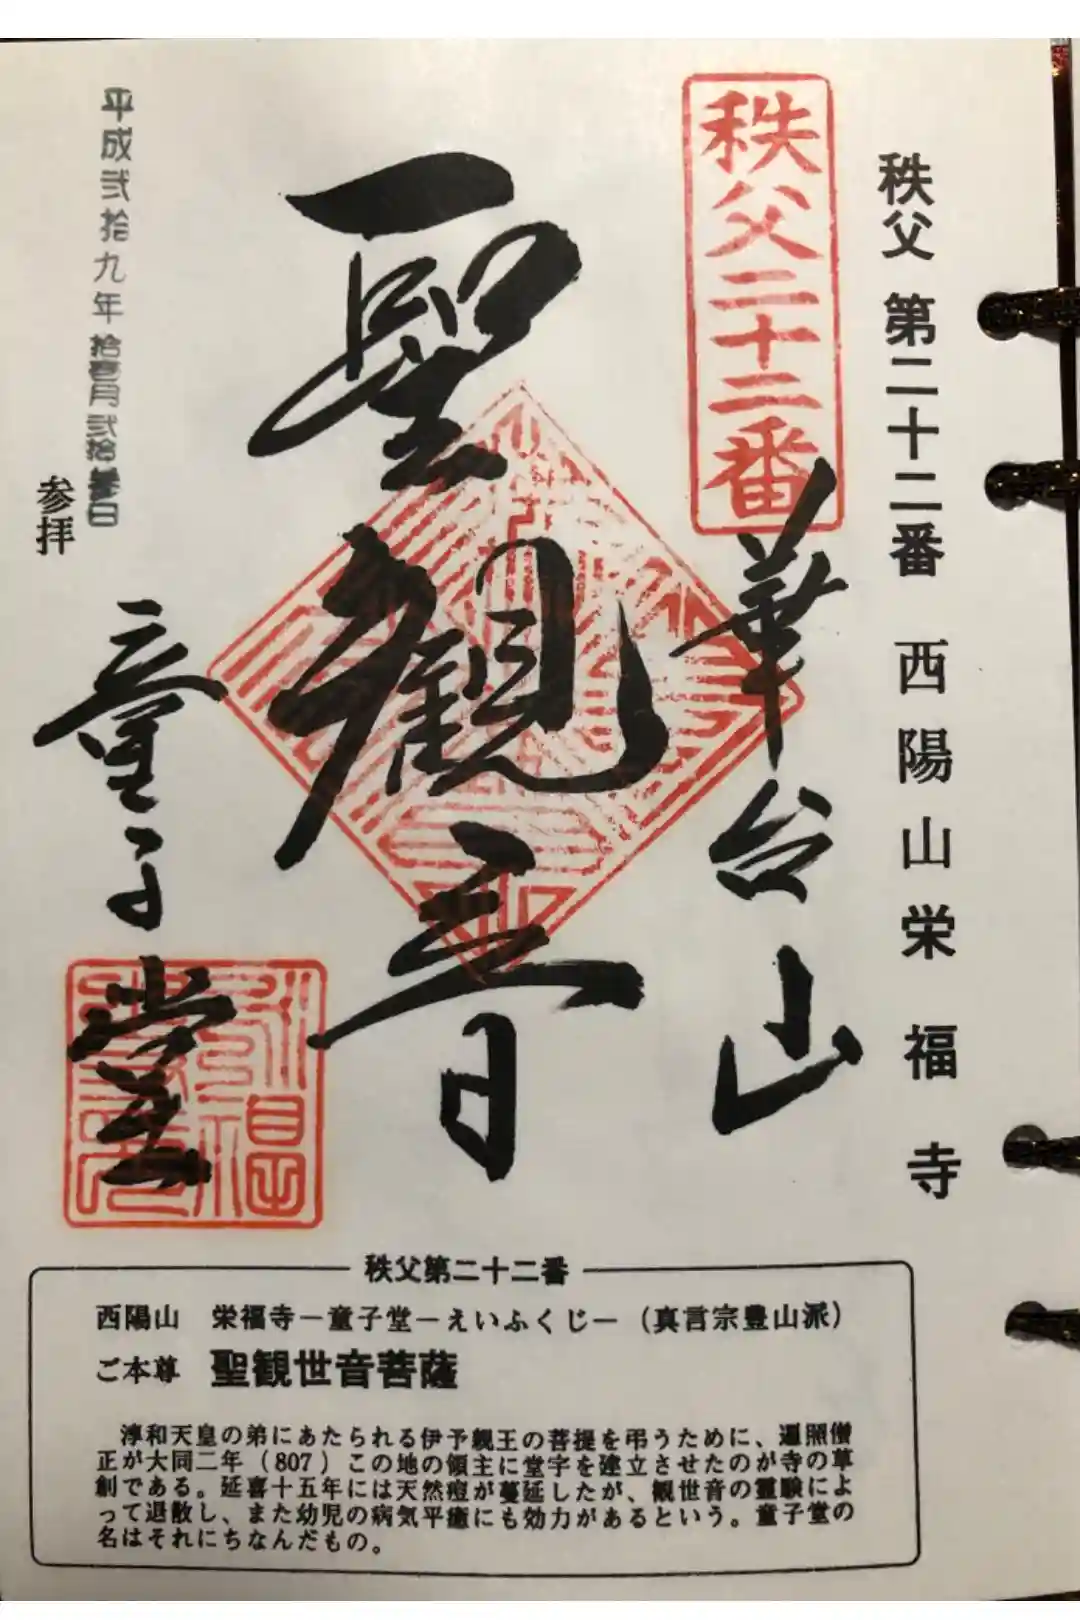 秩父 第二十二番 西陽山栄福寺
秩父二十二番
華台山
聖観音
平成弐拾九年拾壱月弐拾参日
参拝
童子堂
秩父第二十二番
西陽山 栄福寺－童子堂－えいふくじ－（真言宗豊山派）
ご本尊 聖観世音菩薩
淳和天皇の弟にあたられる伊予親王の菩提を弔うために、遍照僧
正が大同二年（807）この地の領主に堂字を建立させたのが寺の草
創である。延喜十五年には天然痘が蔓延したが、観世音の霊験によ
って退散し、また幼児の病気平癒にも効力があるという。童子堂の
名はそれにちなんだもの。